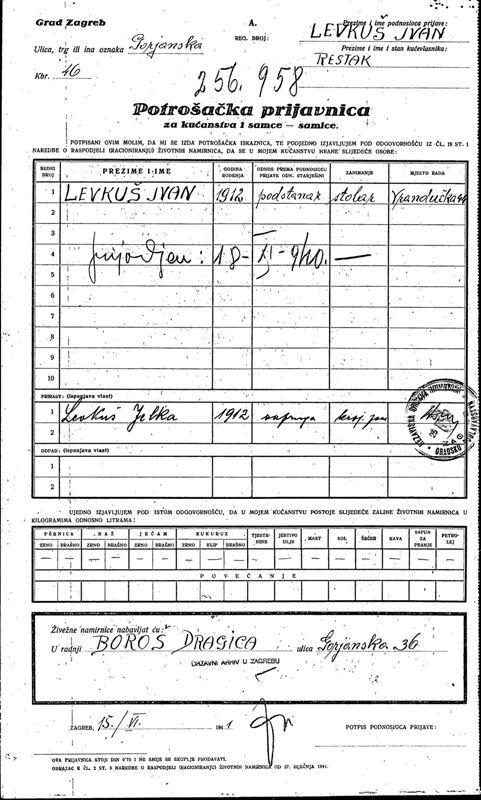 Grad Zagreb
A.
Prezime i ime podnosioca prijave:
LEVKUŠ IVAN
Ulica, trg ili ina oznaka Gorjanska
REG. BROJ:
Prezime i ime i stan kućevlasnika:
RESTAK
Kbr. 16
256.958
Potrošačka prijavnica
za kućanstva i samce — samice.
POTPISANI OVIM MOLIM, DA MI SE IZDA POTROŠAČKA ISKAZNICA, TE PODJEDNO IZJAVLJUJEM POD ODGOVORNOŠĆU IZ ČL. 18 ST. 1
NAREDBE O RASPODJELI (RACIONIRANJU) ŽIVOTNIH NAMIRNICA, DA SE U MOJEM KUĆANSTVU HRANE SLIJEDEĆE OSOBE:
REDNI BROJ PREZIME I IME GODINA ROĐENJA ODNOS PREMA PODNOSIOCU PRIJAVE ODN. STARJEŠINI ZANIMANJE MJESTO RADA
1 LEVKUŠ IVAN 1912 podstanar stolar Vrandučka 44
2
3
4 18-XI-940. —
5
6
7
8
9
10
PRIRAST: (ispunjava vlast)
1 Levkuš Jelka 1912 supruga
2
ODPAD: (ispunjava vlast)
1
2
UJEDNO IZJAVLJUJEM POD ISTOM ODGOVORNOŠĆU, DA U MOJEM KUĆANSTVU POSTOJE SLIJEDEĆE ZALIHE ŽIVOTNIH NAMIRNICA U
KILOGRAMIMA ODNOSNO LITRAMA:
PŠENICA RAŽ JEČAM KUKURUZ TJESTENINE JESTIVO ULJE MAST SOL ŠEĆER KAVA SAPUN ZA PRANJE PETROLEJ
ZRNO BRAŠNO ZRNO BRAŠNO ZRNO BRAŠNO ZRNO KLIP BRAŠNO
— — — — — — — — — — — — — — — — —
POVEĆANJE
Živežne namirnice nabavljat ću:
U radnji BOROŠ DRAGICA ulica Gorjanska 36
DRŽAVNI ARHIV U ZAGREBU
ZAGREB, 15./VI. 1941
POTPIS PODNOSIOCA PRIJAVE:
OVA PRIJAVNICA STOJI DIN 0'75 I NE SMIJE SE SKUPLJE PRODAVATI.
OBRAZAC K ČL. 2 ST. 3 NAREDBE O RASPODJELI (RACIONIRANJU) ŽIVOTNIH NAMIRNICA OD 27. SIJEČNJA 1941.